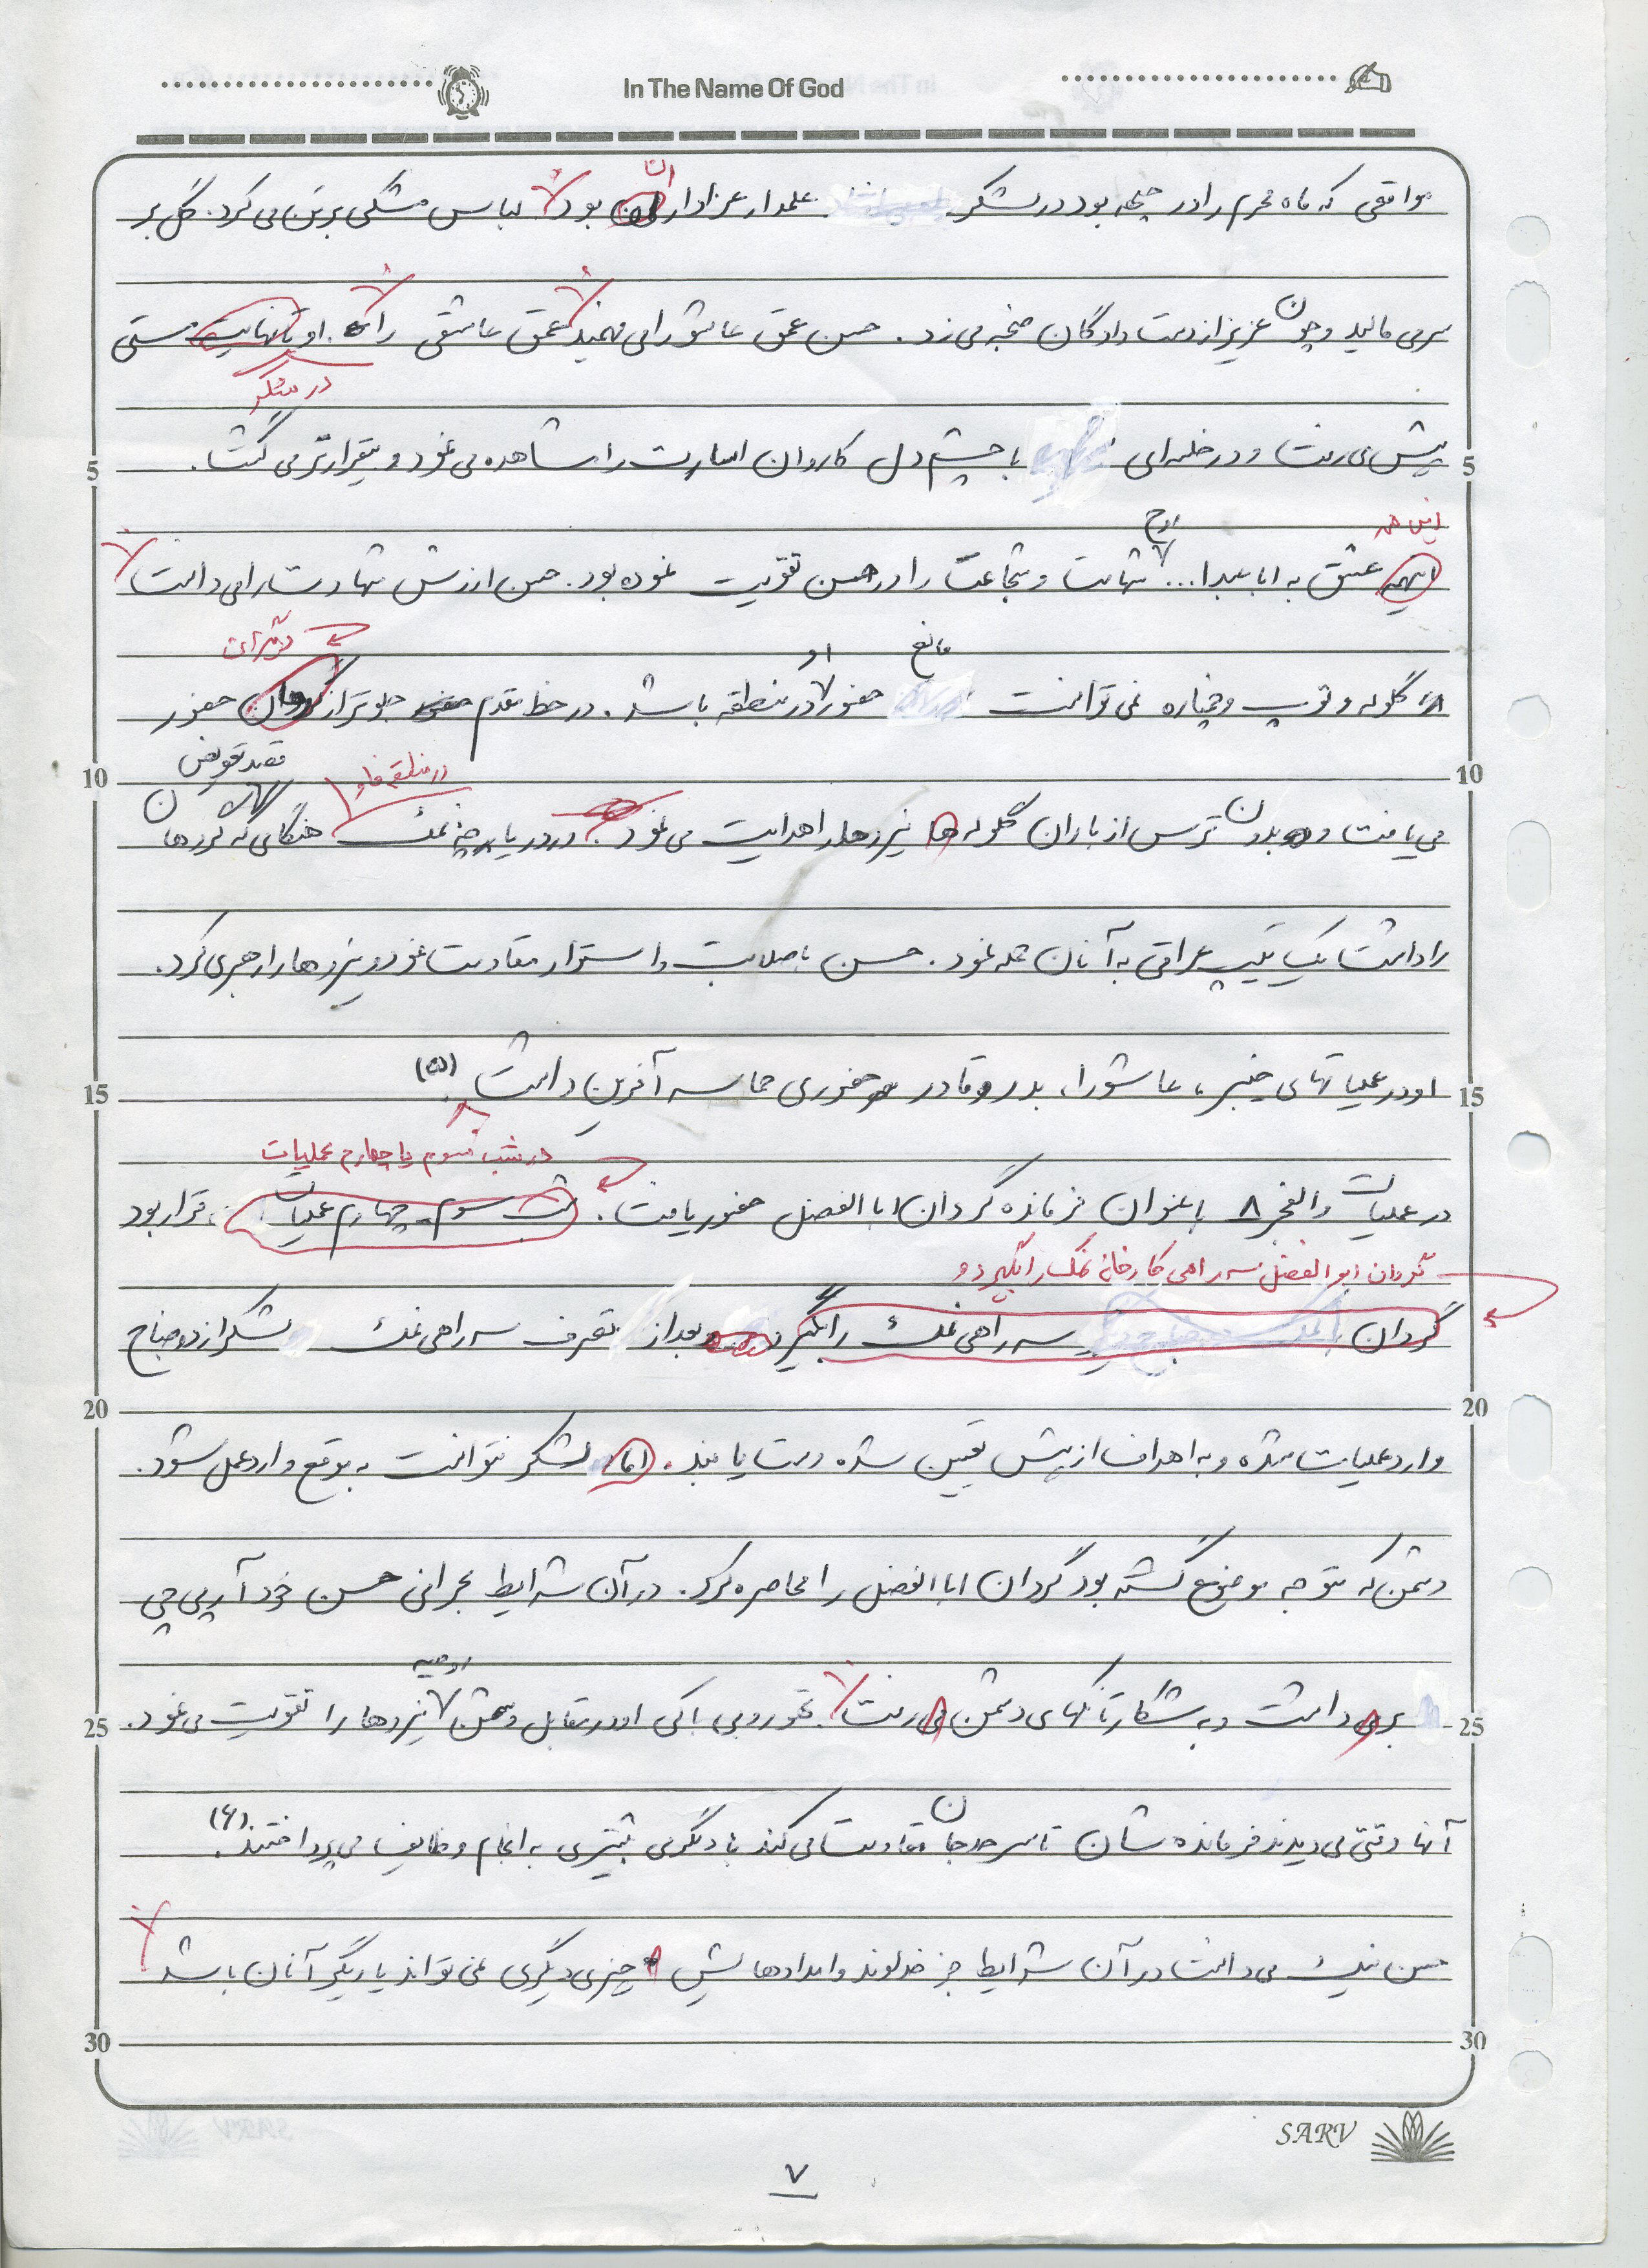 In The Name Of God
مواقعی که ماه محرم را در جبهه بود در لشکر علمدار عزاداران بود لباس مشکی برتن می کرد. گل بر
ان
سر می مالید و چون عزیز از دست دادگان ضجه می زد. حسن عمق عاشورا می فهمید عمق عاشقی را که. او تا نهایت مستی
در لشکر
5 پیش می رفت و در خلسه ای با چشم دل کاروان اسارت را مشاهده می نمود و بیقرارتر می گشت. 5
این همه
روح
اینهمه عشق به ابا عبدا... شهامت و شجاعت را در حسن تقویت نموده بود. حسن ارزش شهادت را می دانست
دیگران
مانع
او
گلوله و توپ و خمپاره نمی توانست حضور در منطقه باشد. در خط مقدم جلوتر از حضور
قصد تعویض
10 در منطقه فاو 10
می یافت و بدون ترس از باران گلوله ها نیروها را هدایت می نمود. در دریاچه نمک هنگامی که گردها ن
را داشت یک تیپ عراقی به آنان حمله نمود. حسن با صلابت و استوار مقاومت نمود و نیروها را رهبری کرد.
15 او در عملیاتهای خیبر، عاشورا، بدر و قادر حضوری حماسه آفرین داشت (۵). 15
در شب سوم یا چهارم عملیات
در عملیات والفجر ۸ با عنوان فرمانده گردان ابا الفضل حضور یافت. شب سوم - چهارم عملیات. قرار بود
گردان ابوالفضل سه راهی کارخانه نمک را بگیرد و
گردان سه راهی نمک را بگیرد بعد از تصرف سه راهی نمک لشکر از جناح
20 20
وارد عملیات شده و به اهداف از پیش تعیین شده دست یابند. اما لشکر نتوانست به موقع وارد عمل شود.
دشمن که متوجه موضوع گشته بود گردان ابا الفضل را محاصره کرد. در آن شرایط بحرانی حسن خود آرپی جی
روحیه
25 بر می داشت و به شکار تانکهای دشمن می رفت. تهور و بی باکی او در مقابل دشمن نیروها را تقویت می نمود. 25
آنها وقتی می دیدند فرمانده شان تا سرحد جان مقاومت می کند با دلگرمی بیشتری به انجام وظایف می پرداختند (۶).
حسن نیک می دانست در آن شرایط جز خداوند و امدادهایش چیزی دیگری نمی تواند یاریگر آنان باشد
30 30
SARV
۷